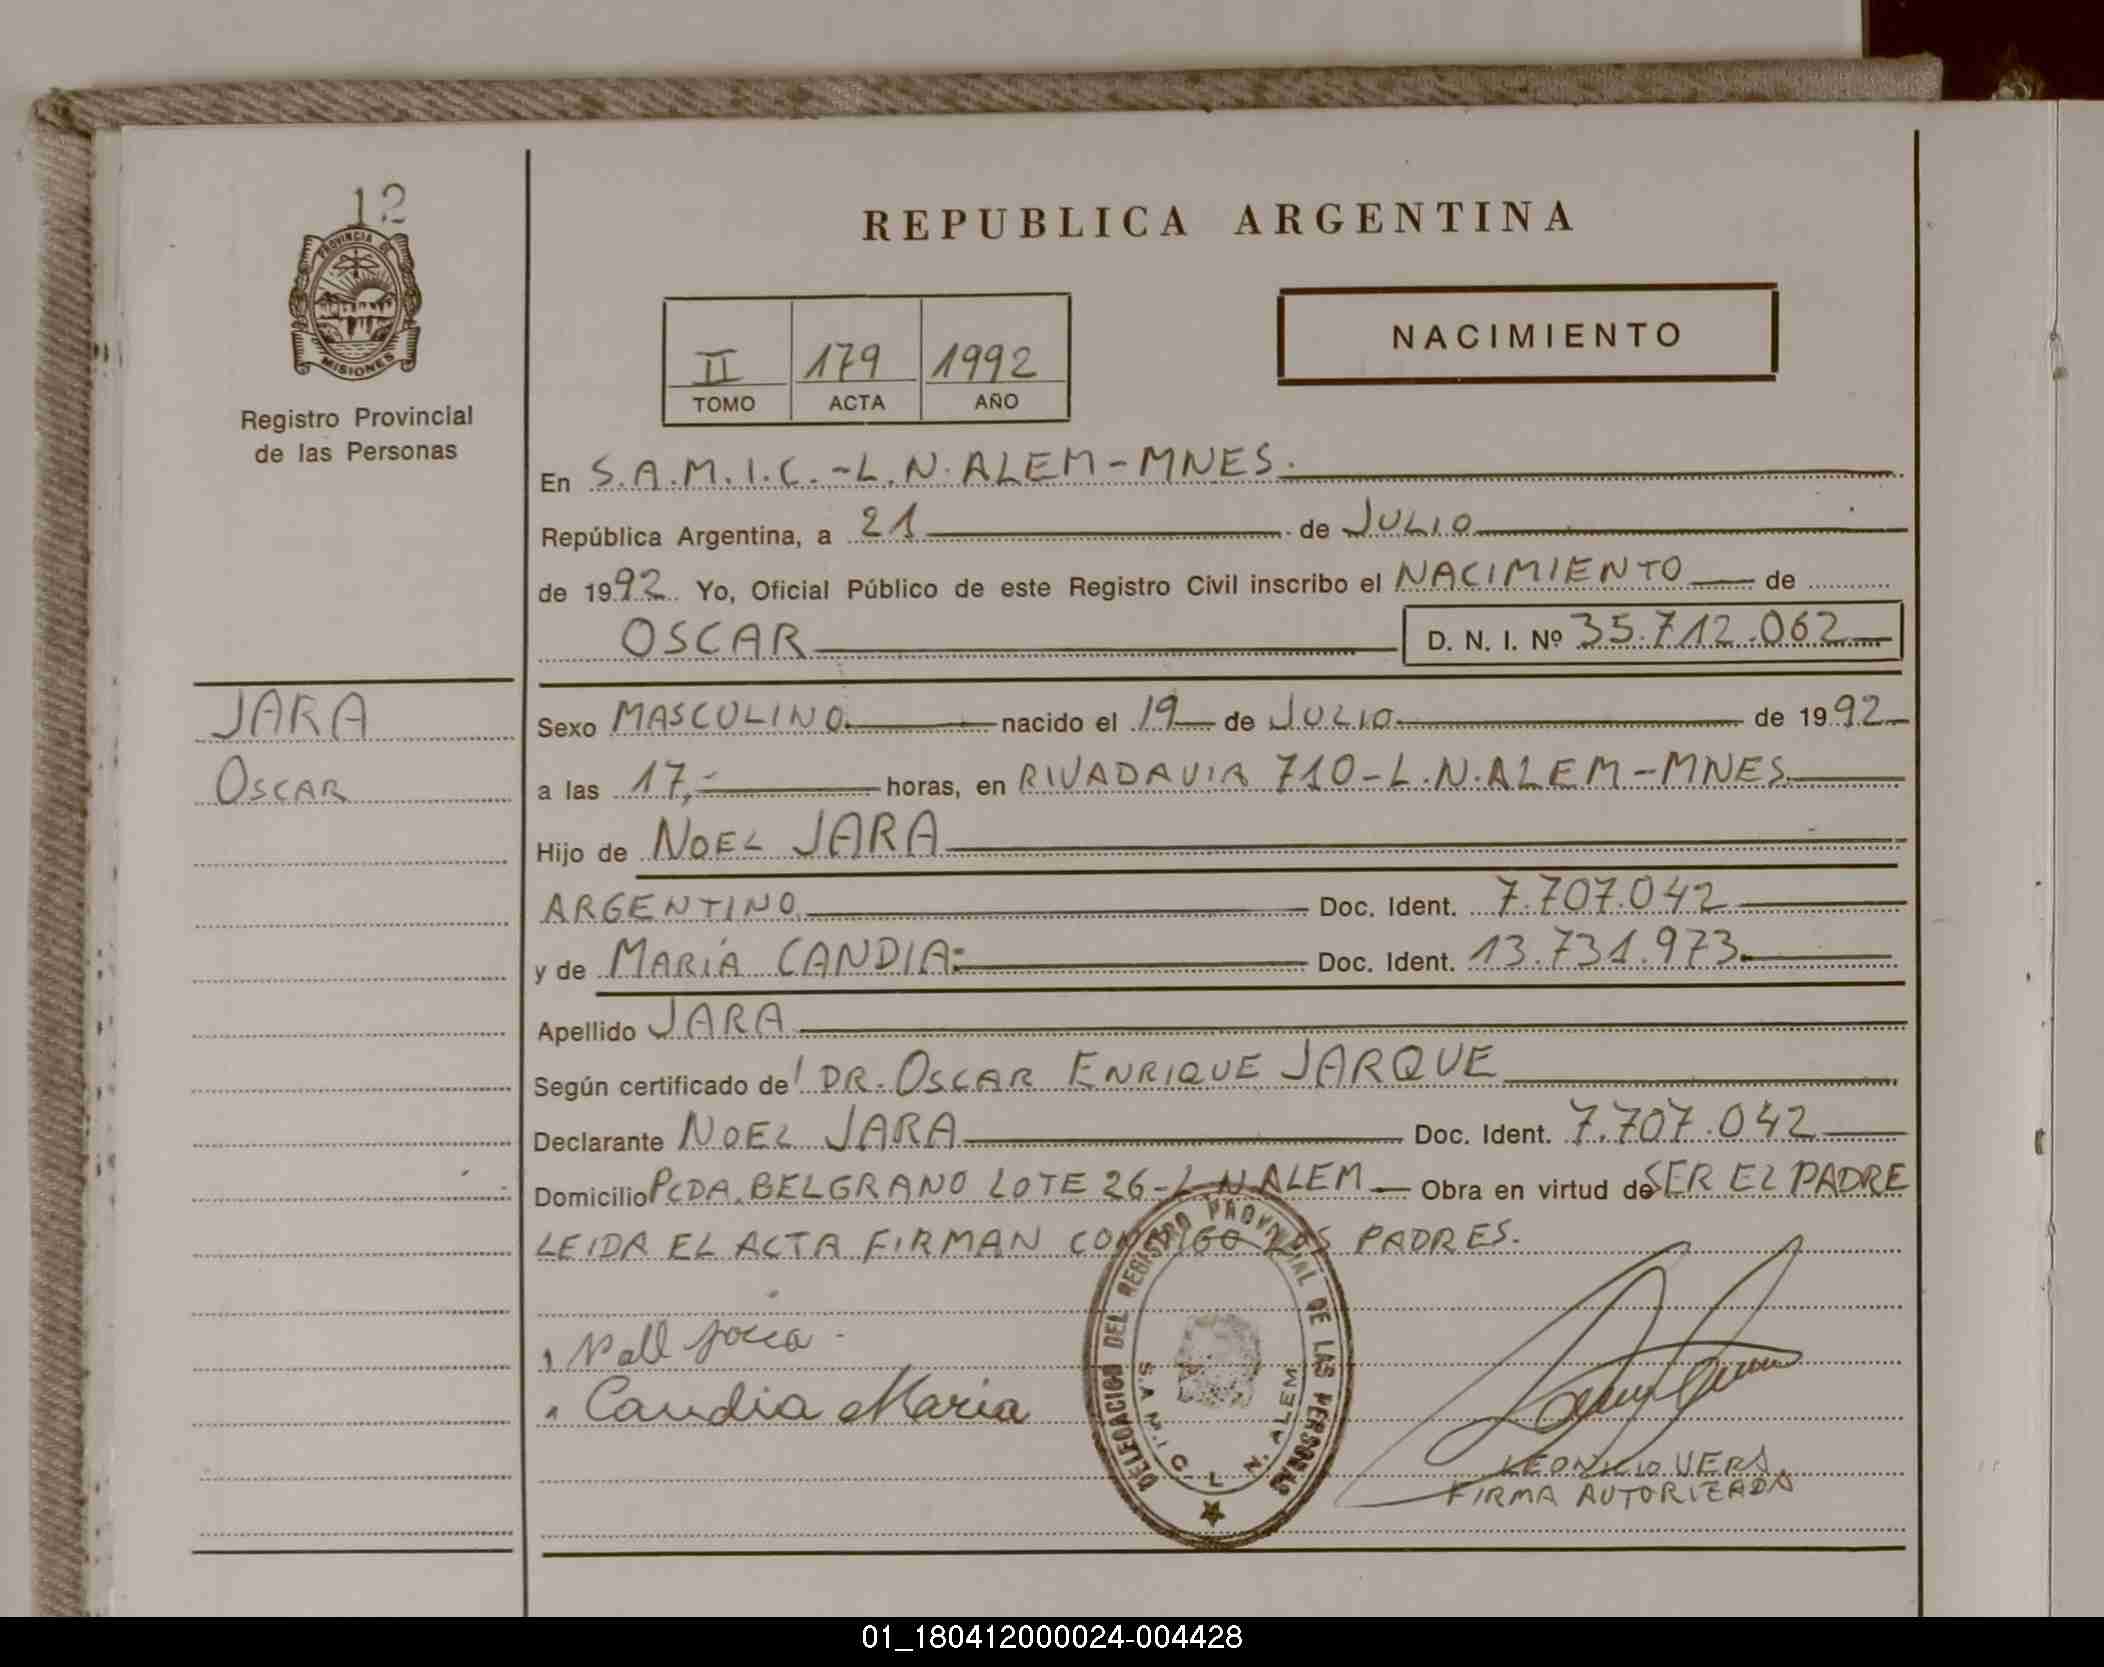 12
PROVINCIA DE
MISIONES
Registro Provincial
de las Personas
JARA
OSCAR
REPUBLICA ARGENTINA
II 179 1992
TOMO ACTA AÑO
NACIMIENTO
En S.A.M.I.C.-L.N.ALEM-MNES.
República Argentina, a 21 de JULIO
de 1992. Yo, Oficial Público de este Registro Civil inscribo el NACIMIENTO de
OSCAR D. N. I. Nº 35.712.062
Sexo MASCULINO nacido el 19 de JULIO de 1992
a las 17,- horas, en RIVADAVIA 710-L.N.ALEM-MNES.
Hijo de NOEL JARA
ARGENTINO Doc. Ident. 7.707.042
y de MARÍA CANDIA Doc. Ident. 13.731.973
Apellido JARA
Según certificado de DR. OSCAR ENRIQUE JARQUE
Declarante NOEL JARA Doc. Ident. 7.707.042
Domicilio PCDA. BELGRANO LOTE 26-L.N.ALEM Obra en virtud de SER EL PADRE
LEIDA EL ACTA FIRMAN CONMIGO LOS PADRES.
Candia Maria
DELEGACION DEL REGISTRO PROVINCIAL DE LAS PERSONAS
S.A.M.I.C. L. N. ALEM
LEONICIO VERA
FIRMA AUTORIZADA
01_180412000024-004428